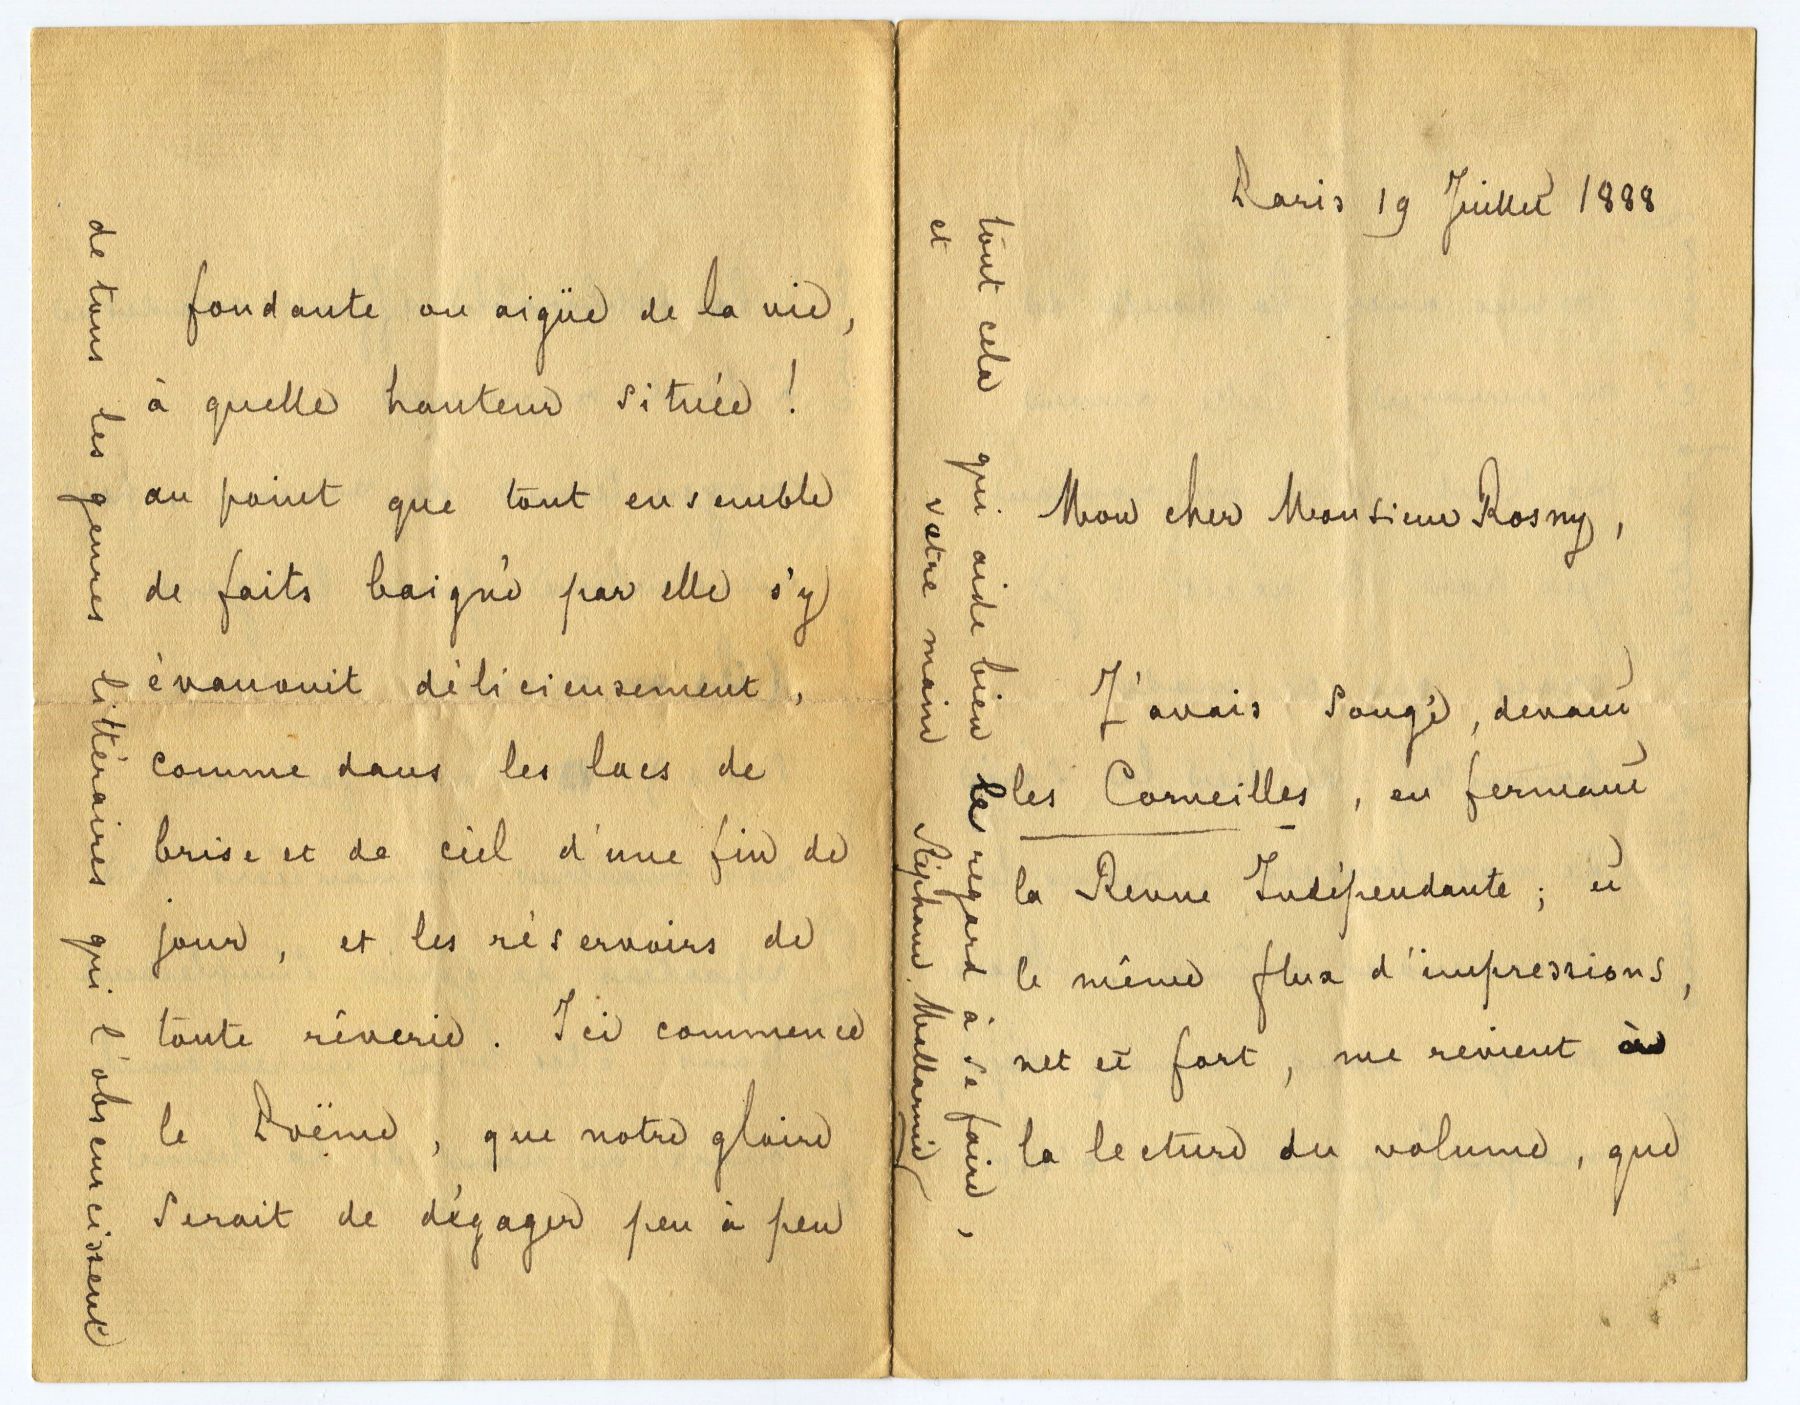 Paris 19 Juillet 1888
Mon cher Monsieur Rosny,
J'avais songé, devant
les Corneilles, en fermant
la Revue Indépendante ; et
le même flux d'impressions,
net et fort, me revient à
la lecture du volume, que
fondante ou aigüe de la vie,
à quelle hauteur située !
au point que tout ensemble
de faits baigné par elle s'y
évanouit délicieusement,
comme dans les lacs de
brise et de ciel d'une fin de
jour, et les réservoirs de
toute rêverie. Ici commence
le Poëme, que notre gloire
serait de dégager peu à peu
de tous les genres littéraires qui l'obscurcissent
tout cela qui aide bien le regard à se faire,
et votre main Stéphane Mallarmé